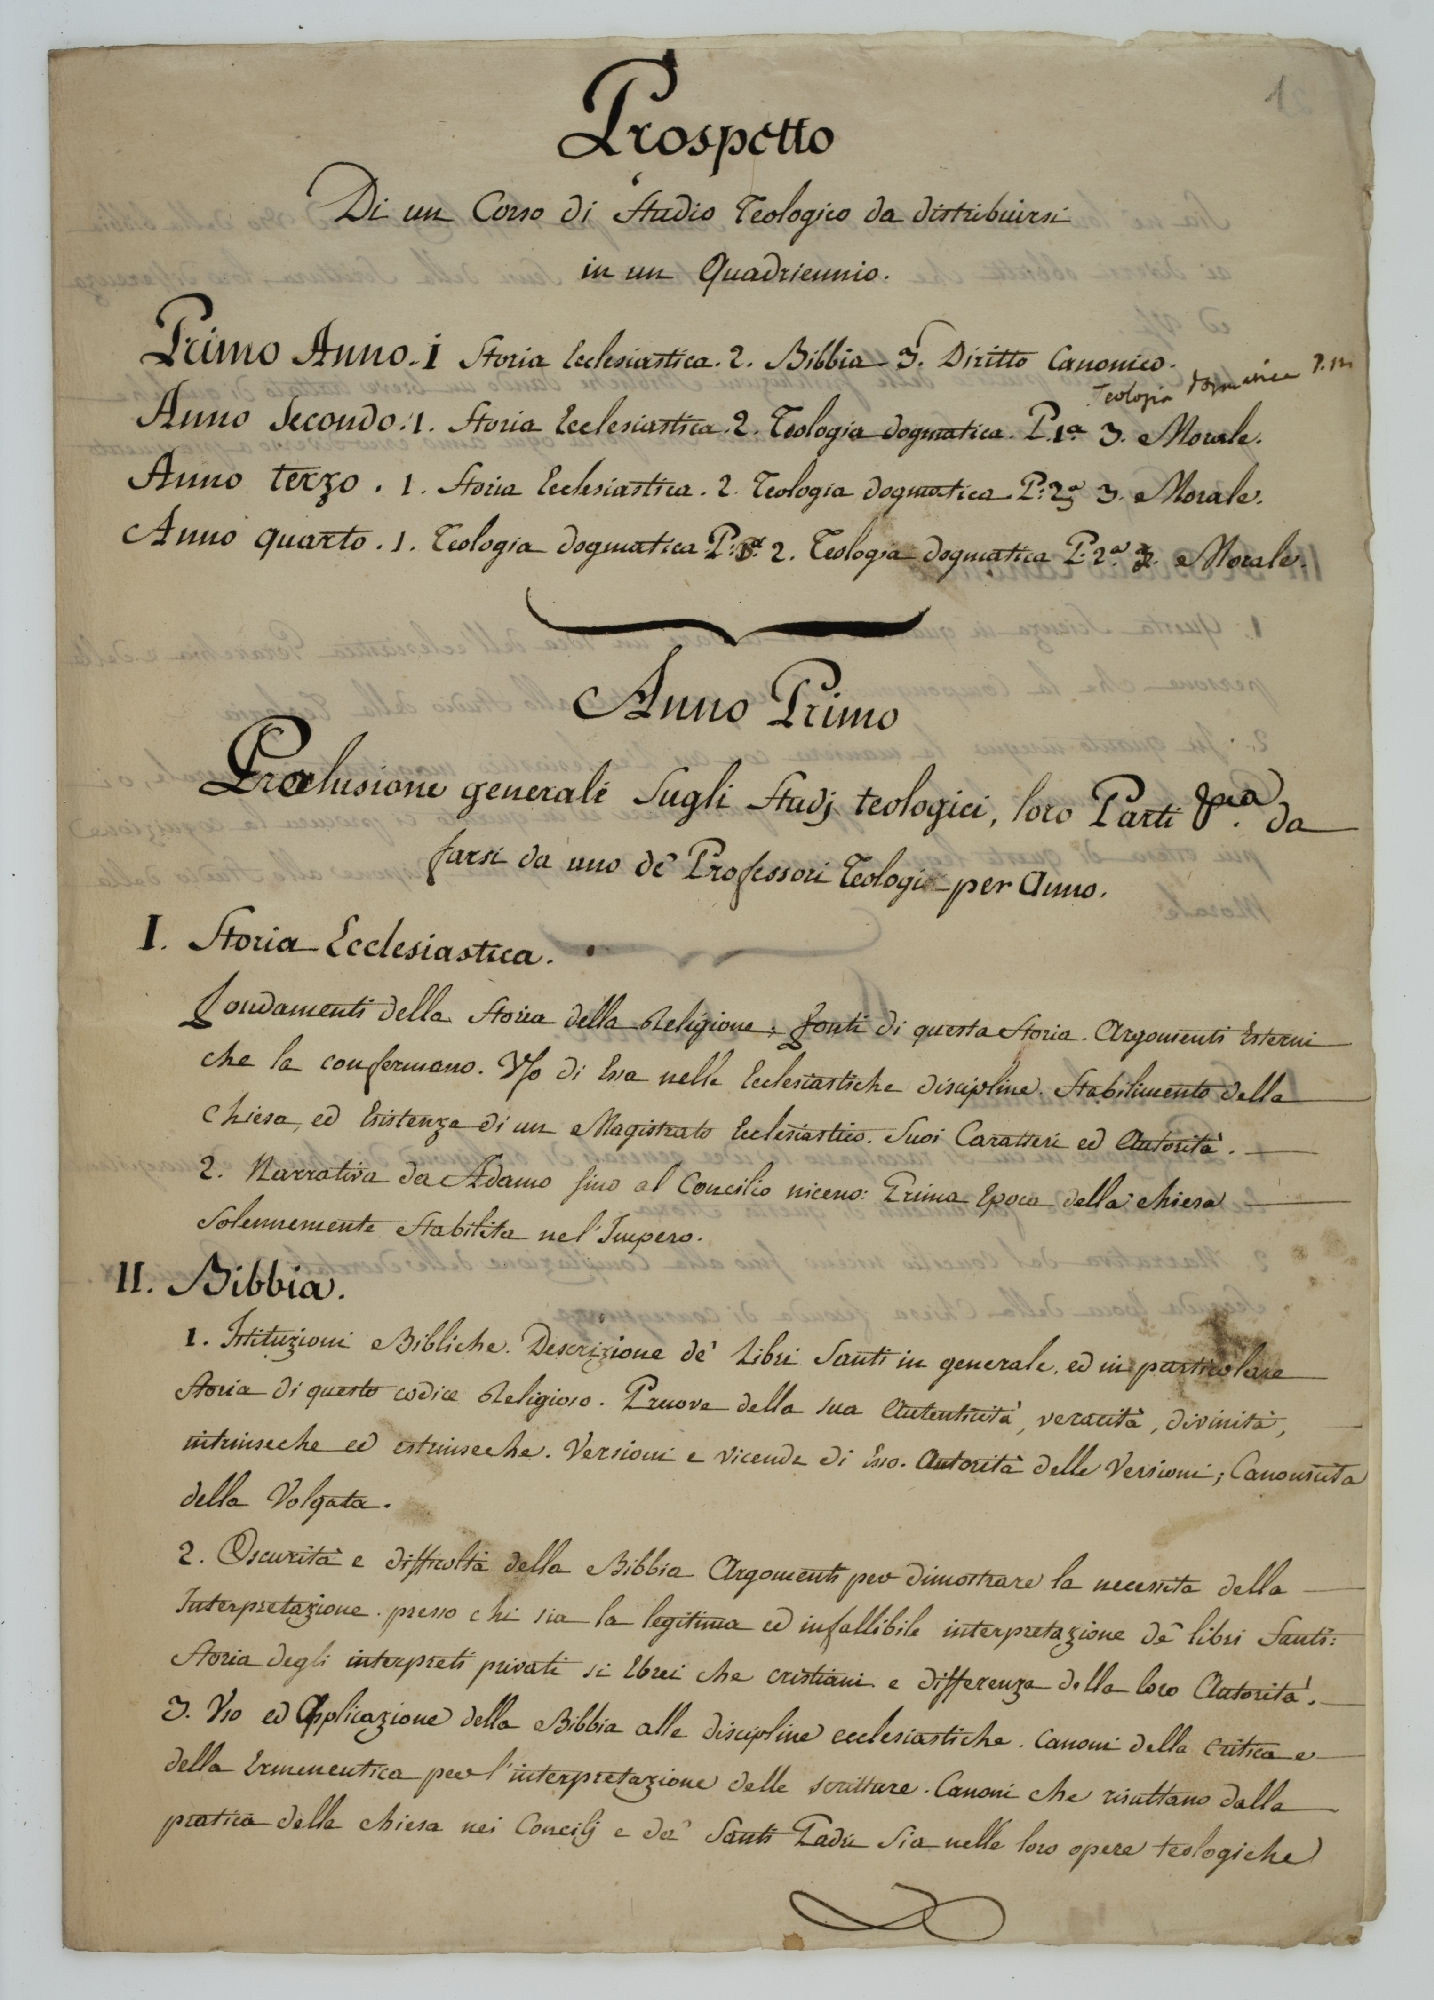 1
Prospetto
Di un Corso di Studio Teologico da distribuirsi
in un Quadriennio.
Primo Anno. 1 Storia Ecclesiastica. 2. Bibbia 3. Diritto Canonico.
Teologia dogmatica P.
Anno Secondo. 1. Storia Ecclesiastica. 2. Teologia dogmatica. P. 1ª 3. Morale.
Anno terzo. 1. Storia Ecclesiastica. 2. Teologia dogmatica P: 2ª 3. Morale.
Anno quarto. 1. Teologia dogmatica P: 2. Teologia dogmatica P: 2ª 3. Morale.
Anno Primo
Praelusione generale sugli Studj teologici, loro Parti da
farsi da uno de' Professori Teologi per Anno.
I. Storia Ecclesiastica.
Fondamenti della Storia della Religione; fonti di questa Storia. Argomenti Esterni
che la confermano. Uso di Essa nelle Ecclesiastiche discipline. Stabilimento della
Chiesa, ed Esistenza di un Magistrato Ecclesiastico. Suoi Caratteri ed Autorità.
2. Narrativa da Adamo fino al Concilio niceno: Prima Epoca della chiesa
solennemente Stabilita nel' Impero.
II. Bibbia.
1. Istituzioni Bibliche. Descrizione de' Libri Santi in generale, ed in particolare
Storia di questo codice Religioso. Pruove della sua Autenticità, veracità, divinità,
intrinseche ed estrinseche. Versioni e vicende di Esso. Autorità delle Versioni; Canonicità
della Volgata.
2. Oscurità e difficoltà della Bibbia Argomenti per dimostrare la necessità della
Interpretazione. presso chi sia la legitima ed infallibile interpretazione de' libri Santi:
Storia degli interpreti privati si Ebrei che cristiani e differenza della loro Autorità.
3. Uso ed Applicazione della Bibbia alle discipline ecclesiastiche. Canoni della critica e
della Ermeneutica per l'interpretazione delle scritture. Canoni che risultano dalla
pratica della chiesa nei Concilj e de' Santi Padri sia nelle loro opere teologiche